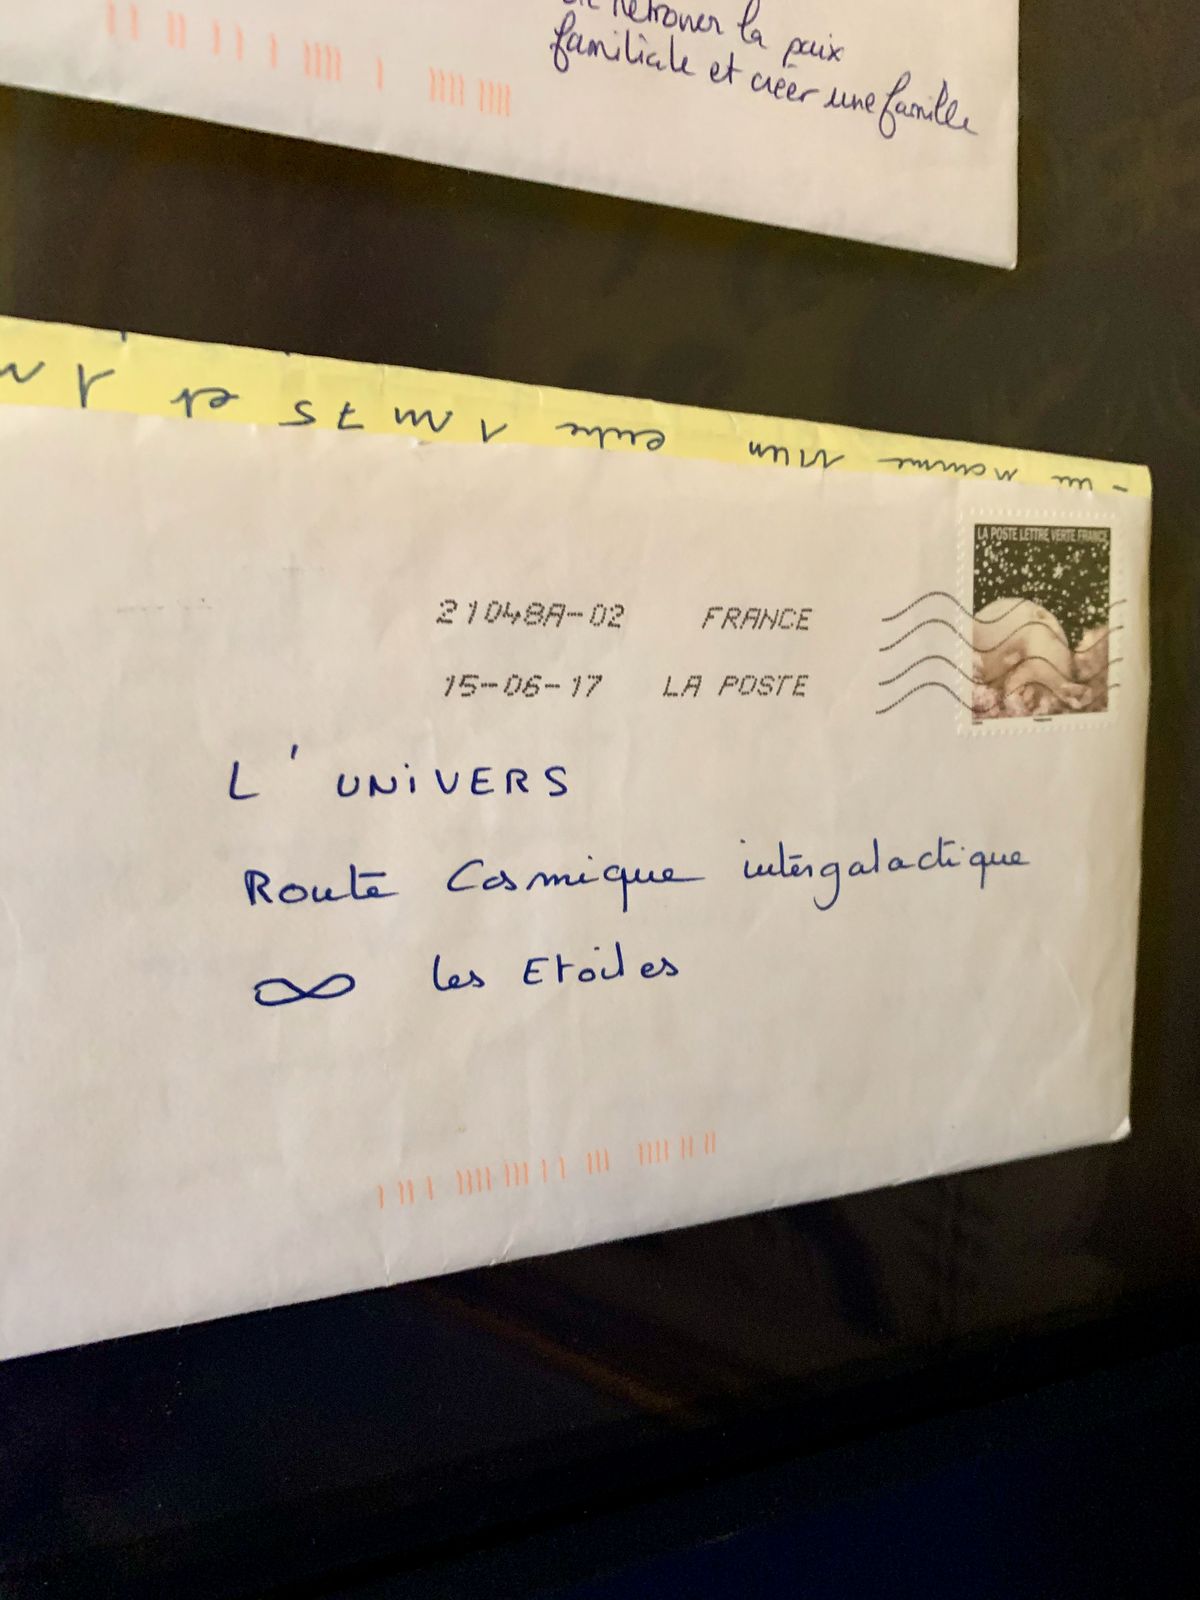 retrouver la paix
familiale et créer une famille
- un homme mûr entre 1m75 et 1m
LA POSTE LETTRE VERTE FRANCE
21048A-02 FRANCE
15-06-17 LA POSTE
L'UNiVERS
Route Cosmique intergalactique
∞ les Etoiles